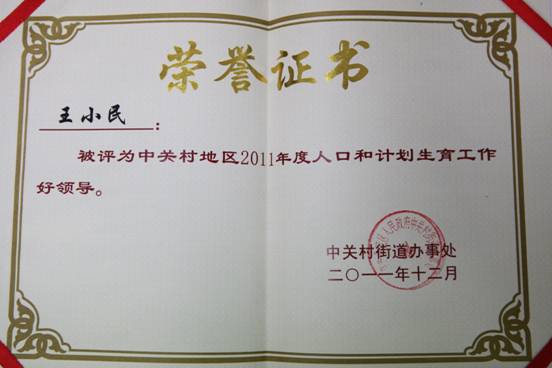 荣誉证书
王小民：
被评为中关村地区2011年度人口和计划生育工作
好领导。
中关村街道办事处
二〇一一年十二月